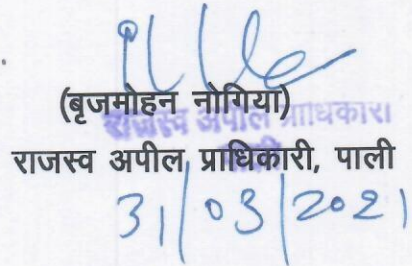 (बृजमोहन नोगिया)
राजस्व अपील प्राधिकारी
राजस्व अपील प्राधिकारी, पाली
31/03/2021